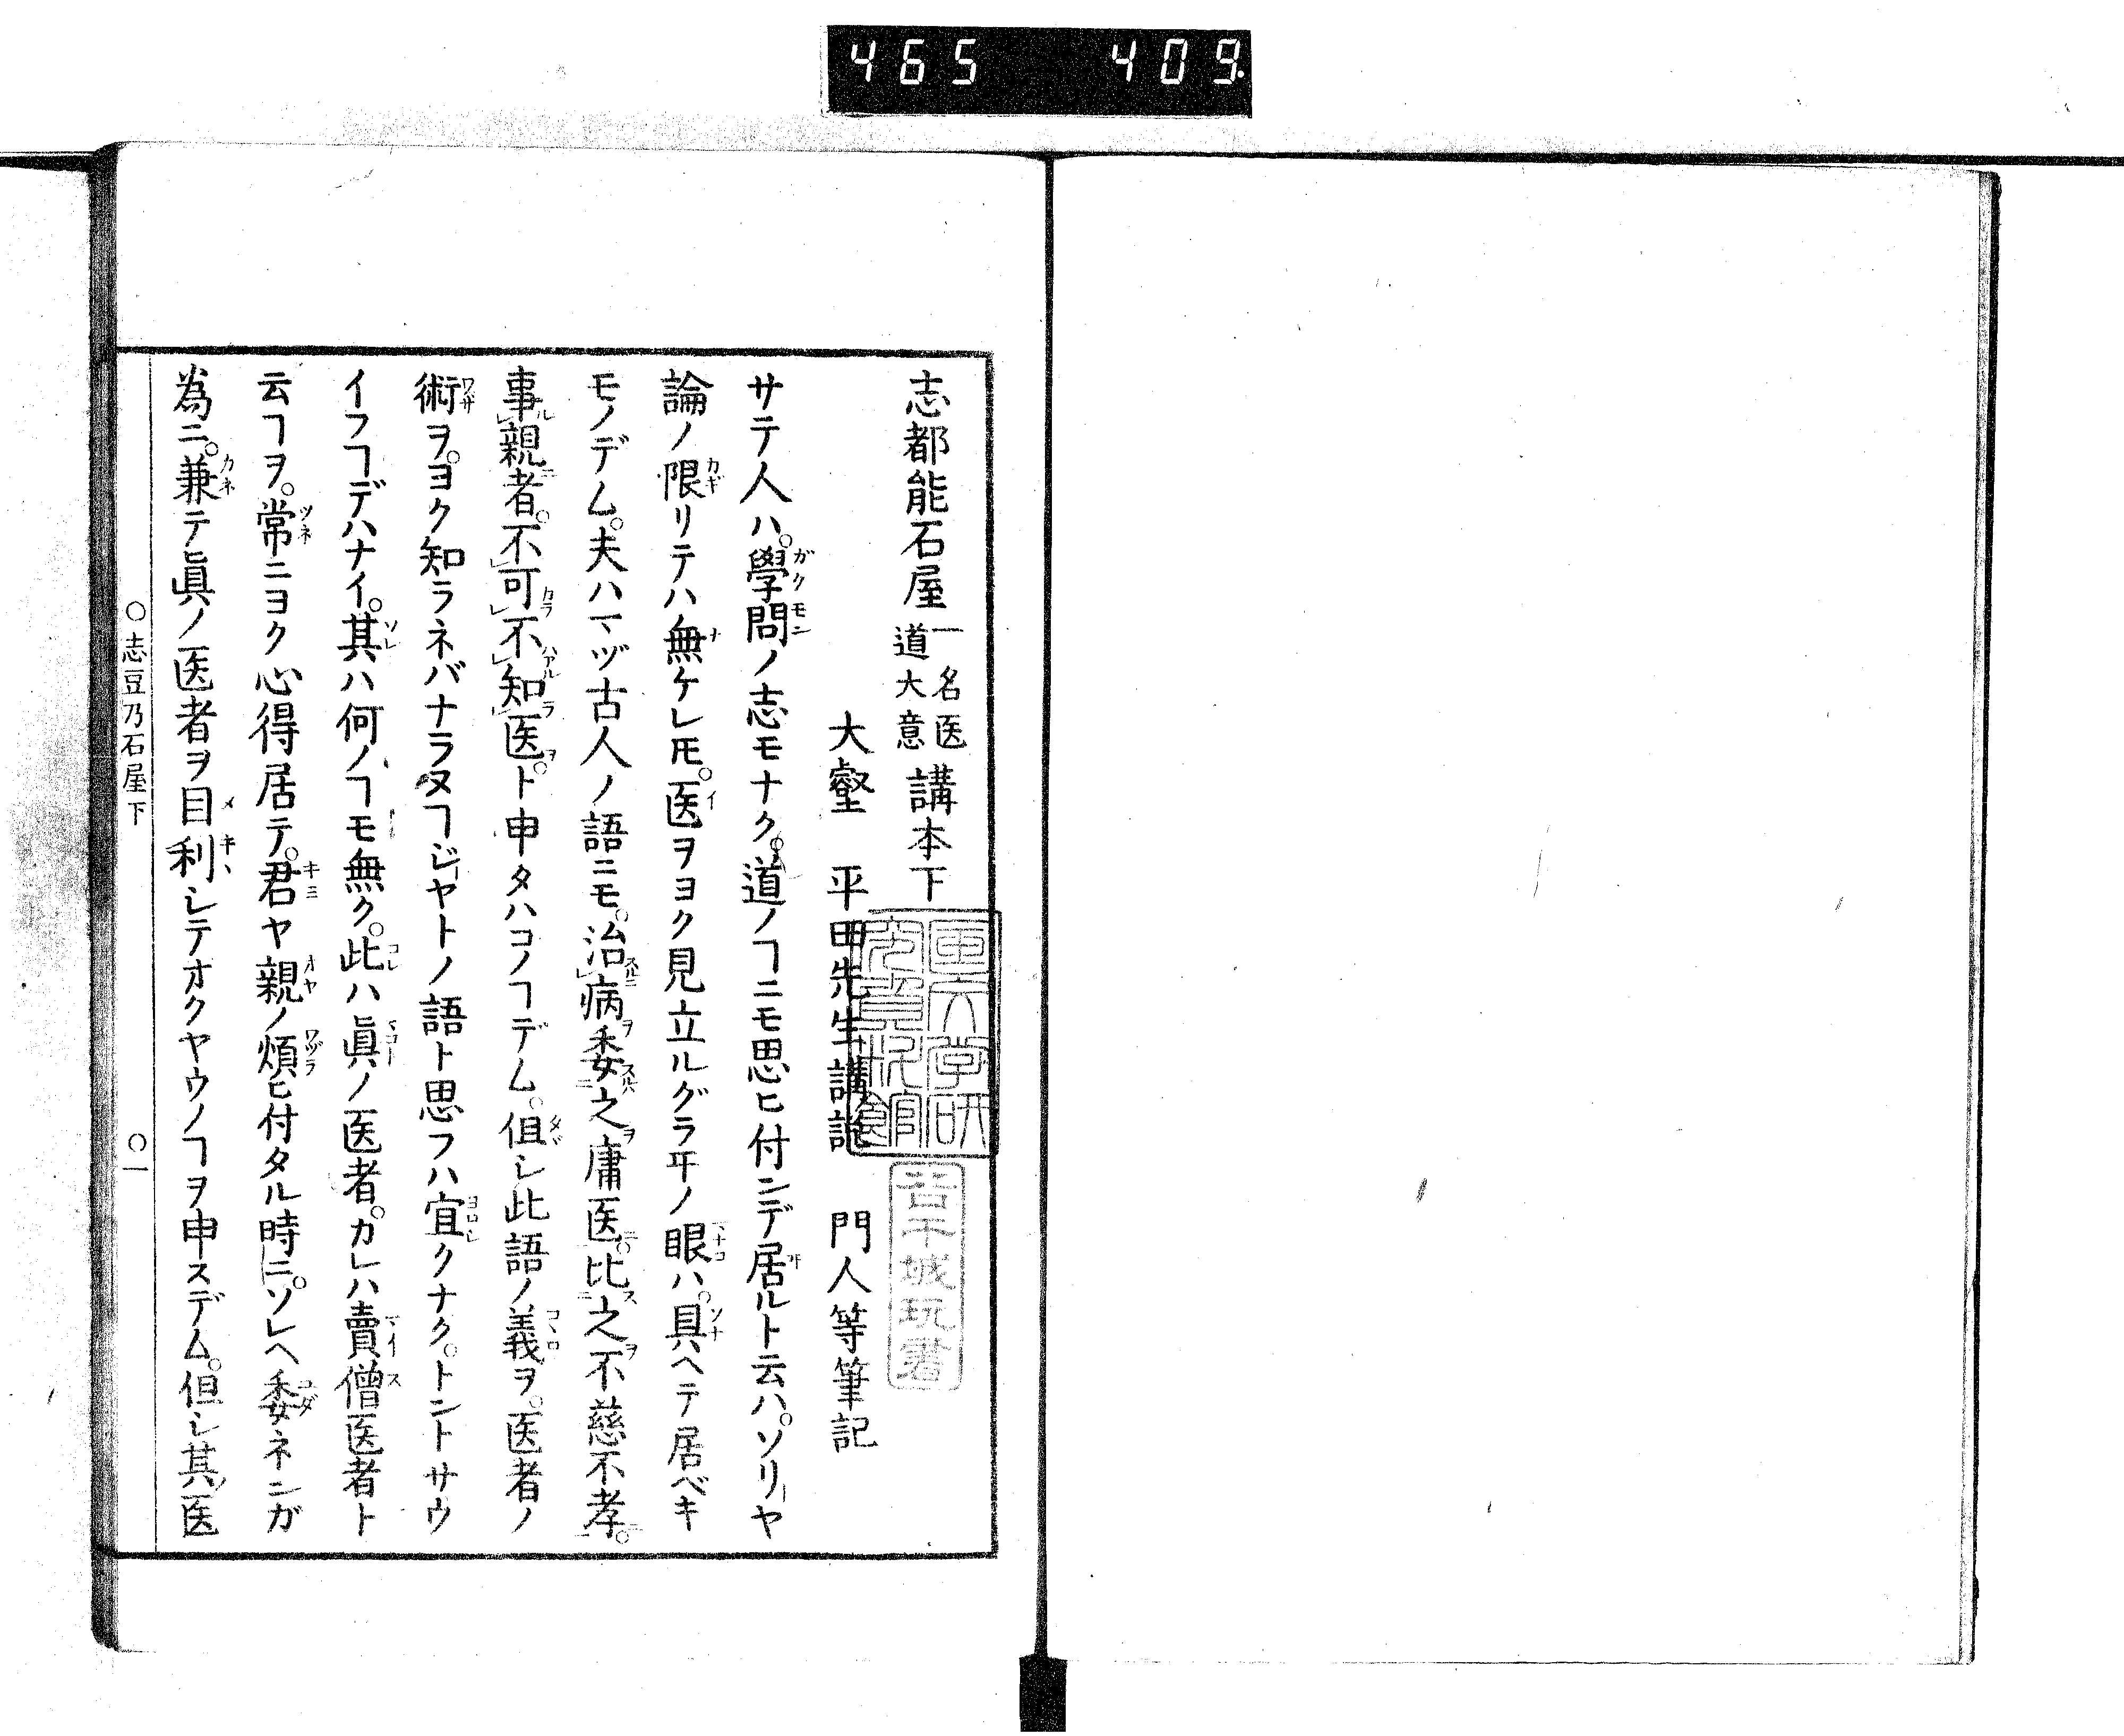 465 409
志都能石屋 一名医道大意 講本下
大壑 平田先生講說 門人等筆記
サテ人ハ。學問ノ志モナク。道ノヿニモ思ヒ付ンデ居ルト云ハ。ソリヤ
論ノ限リテハ無ケレ𪜈。医ヲヨク見立ルグラヰノ眼ハ。具ヘテ居ベキ
モノデム。夫ハマヅ古人ノ語ニモ。治病委之庸医。比之不慈不孝。
事親者。不可不知医。ト申タハコノヿデム。但シ此語ノ義ヲ。医者ノ
術ヲ。ヨク知ラネバナラヌヿジヤトノ語ト思フハ宜クナク。トントサウ
イフヿデハナイ。其ハ何ノヿモ無ク。此ハ眞ノ医者。カレハ賣僧医者ト
云ヿヲ。常ニヨク心得居テ。君ヤ親ノ煩ヒ付タル時ニ。ソレヘ委ネンガ
為ニ。兼テ眞ノ医者ヲ目利シテオクヤウノヿヲ申スデム。但シ其医
○志豆乃石屋下 ○一